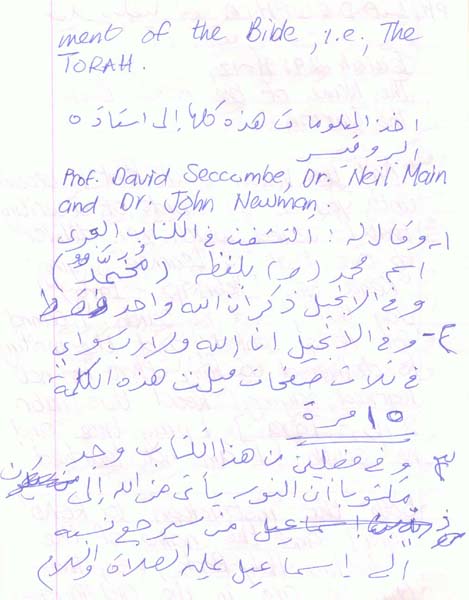 ment of the Bible, i.e., The
TORAH.
اخذ المعلومات هذه كلها إلى استاذه
البروفيسر
Prof. David Seccombe, Dr. Neil Main
and Dr. John Newman.
١- وقال له : اكتشفت في الكتاب العبرى
اسم محمد (ص) بلفظه (مُحَمَّد)
وفي الانجيل ذكر أن الله واحد فقط
٢- وفي الانجيل انا الله ولا رب سواي
في ثلاث صفحات قيلت هذه الكلمة
١٥ مرة
٣ وفي فصلين من هذا الكتاب وجد
مكتوبا أن النور يأتى من الله إلى
من سيرجع نسبه
الى إسماعيل عليه الصلاة والسلام